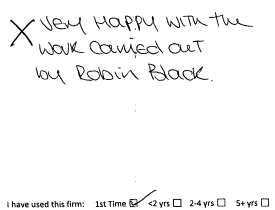 X Very Happy with the
work Carried out
by Robin Black.
I have used this firm: 1st Time ☑ <2 yrs ☐ 2-4 yrs ☐ 5+ yrs ☐